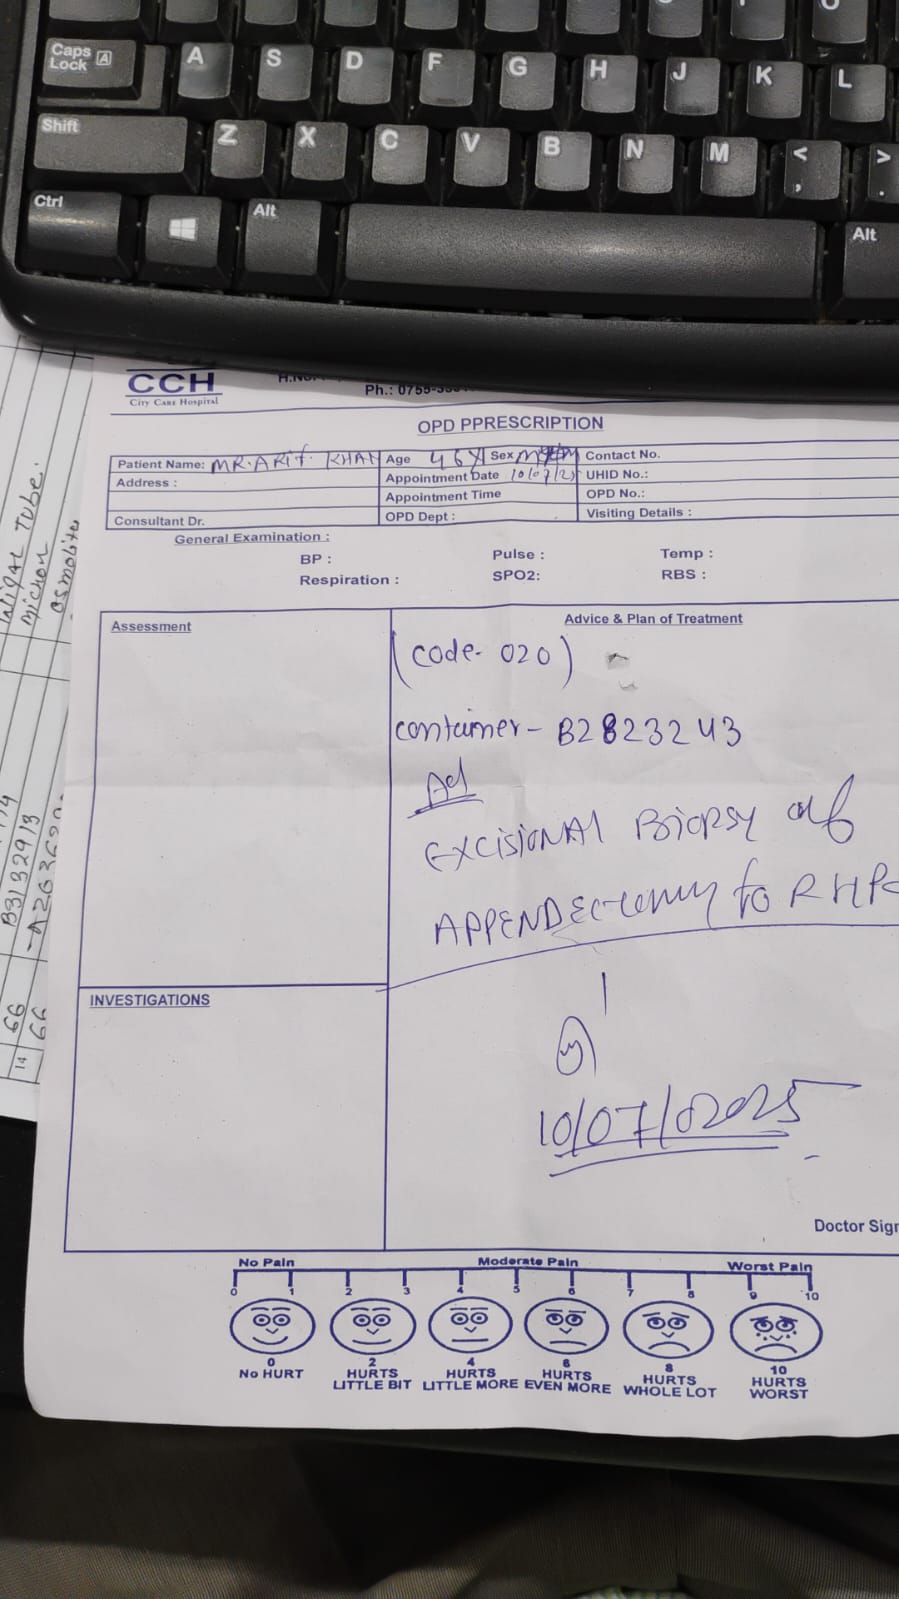 Caps Lock A
A S D F G H J K L
Shift
Z X C V B N M < , > .
Ctrl
Alt
Alt
CCH
City Care Hospital
Ph.: 0755-
OPD PPRESCRIPTION
Patient Name: MR. ARIF. KHAN Age 46Y Sex Contact No.
Address : Appointment Date 10/07/25 UHID No.:
Appointment Time OPD No.:
Consultant Dr. OPD Dept : Visiting Details :
General Examination :
BP : Pulse : Temp :
Respiration : SPO2: RBS :
Assessment
Advice & Plan of Treatment
(code- 020)
container - B2823243
Ad
EXCISIONAL BIOPSY of
APPENDECtomy for HP
INVESTIGATIONS
10/07/2025
Doctor Sign
No Pain Moderate Pain Worst Pain
0 1 2 3 4 5 6 7 8 9 10
0 2 4 6 8 10
No HURT HURTS LITTLE BIT HURTS LITTLE MORE HURTS EVEN MORE HURTS WHOLE LOT HURTS WORST
TUBE.
micron
osmolite
B3132913
14 66
66